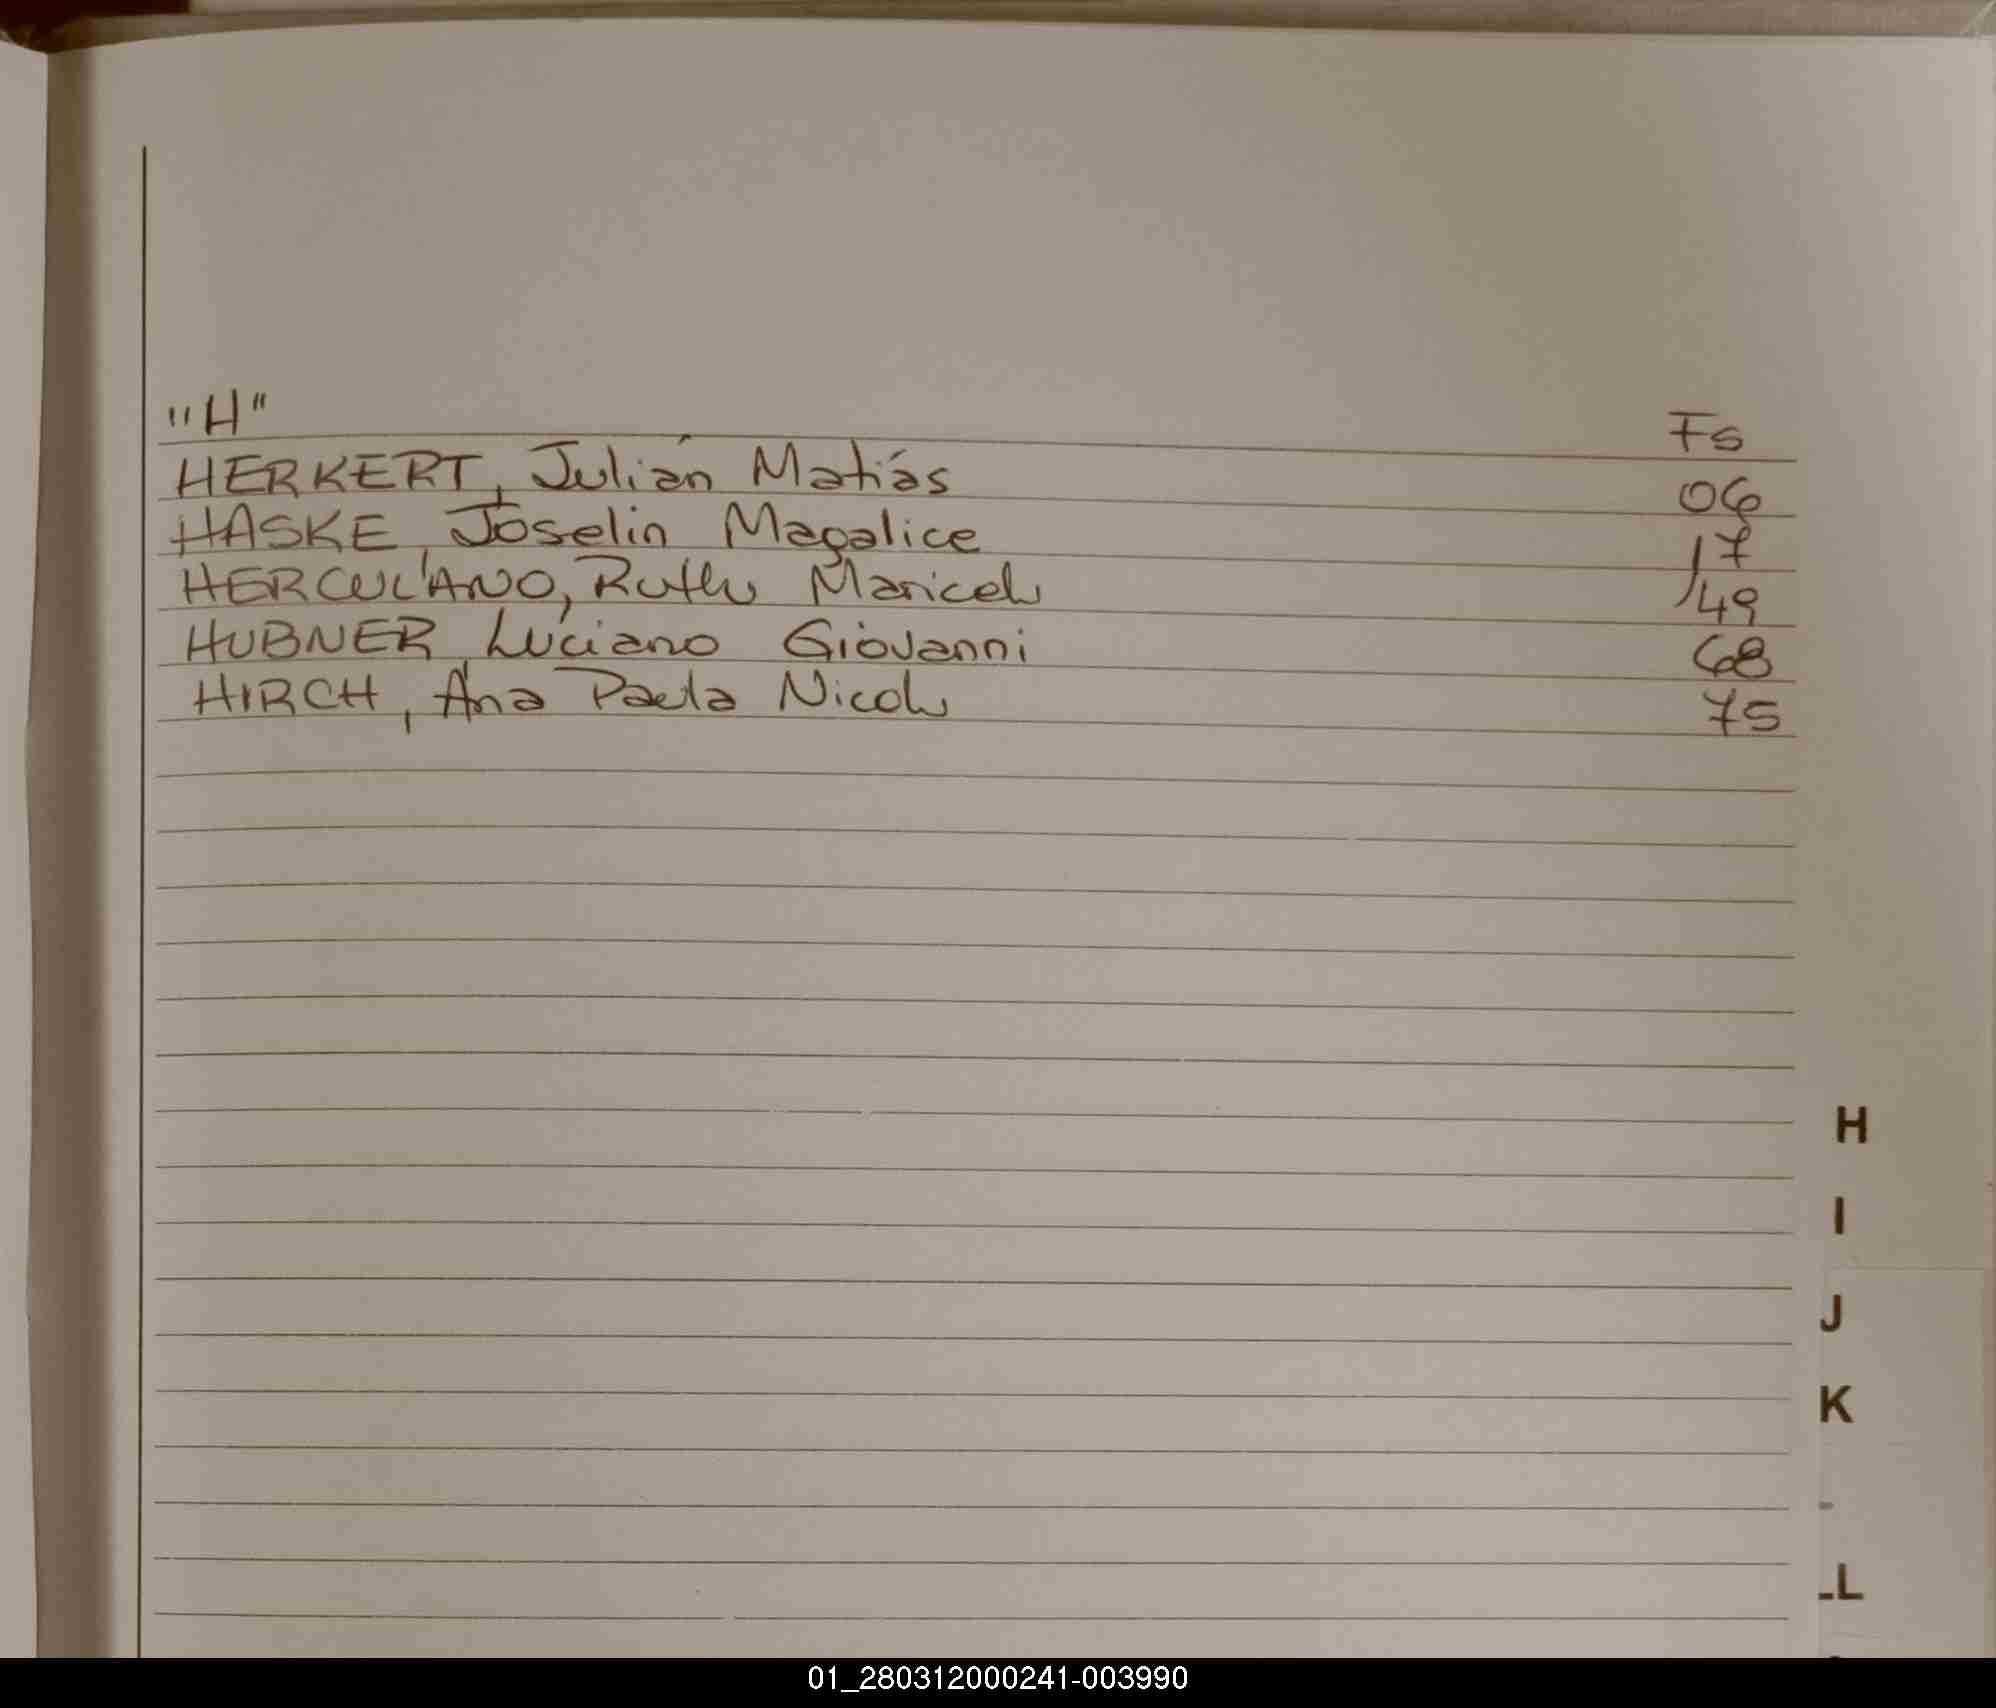 "H" Fs
HERKERT, Julián Matías 06
HASKE, Joselin Magalice 17
HERCULANO, Ruth Maricel 49
HUBNER, Luciano Giovanni 68
HIRCH, Ana Paula Nicol 75
H
I
J
K
L
01_280312000241-003990